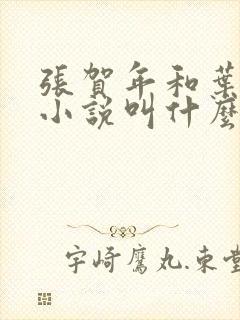 張賀年和葉
小說叫什麼
宇崎鷹丸.東堂